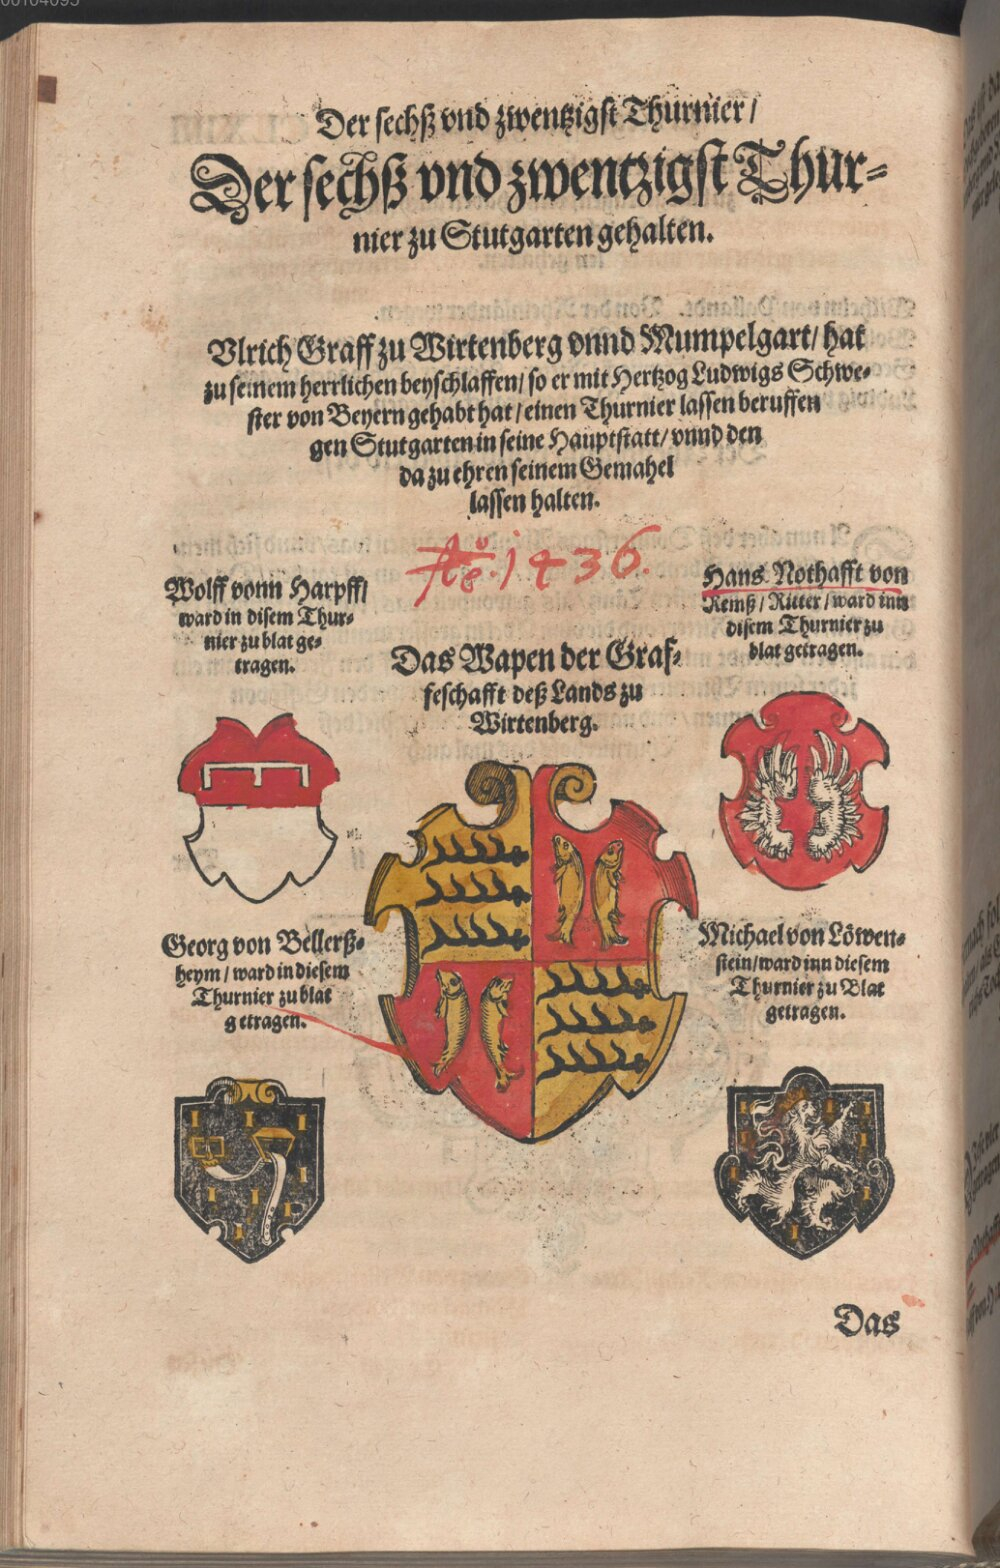 00104095
Der sechß vnd zwentzigst Thurnier /
Der sechß vnd zwentzigst Thur-
nier zu Stutgarten gehalten.
Vlrich Graff zu Wirtenberg vnnd Mumpelgart / hat
zu seinem herrlichen beyschlaffen / so er mit Hertzog Ludwigs Schwe-
ster von Beyern gehabt hat / einen Thurnier lassen beruffen
gen Stutgarten in seine Hauptstatt / vnnd den
da zu ehren seinem Gemahel
lassen halten.
Ao. 1436.
Wolff vonn Harpff /
ward in disem Thur-
nier zu blat ge-
tragen.
Hans Nothafft von
Remß / Ritter / ward inn
disem Thurnier zu
blat getragen.
Das Wapen der Graf-
feschafft deß Lands zu
Wirtenberg.
Georg von Bellerß-
heym / ward in diesem
Thurnier zu blat
getragen.
Michael von Löwen-
stein / ward inn diesem
Thurnier zu Blat
getragen.
Das